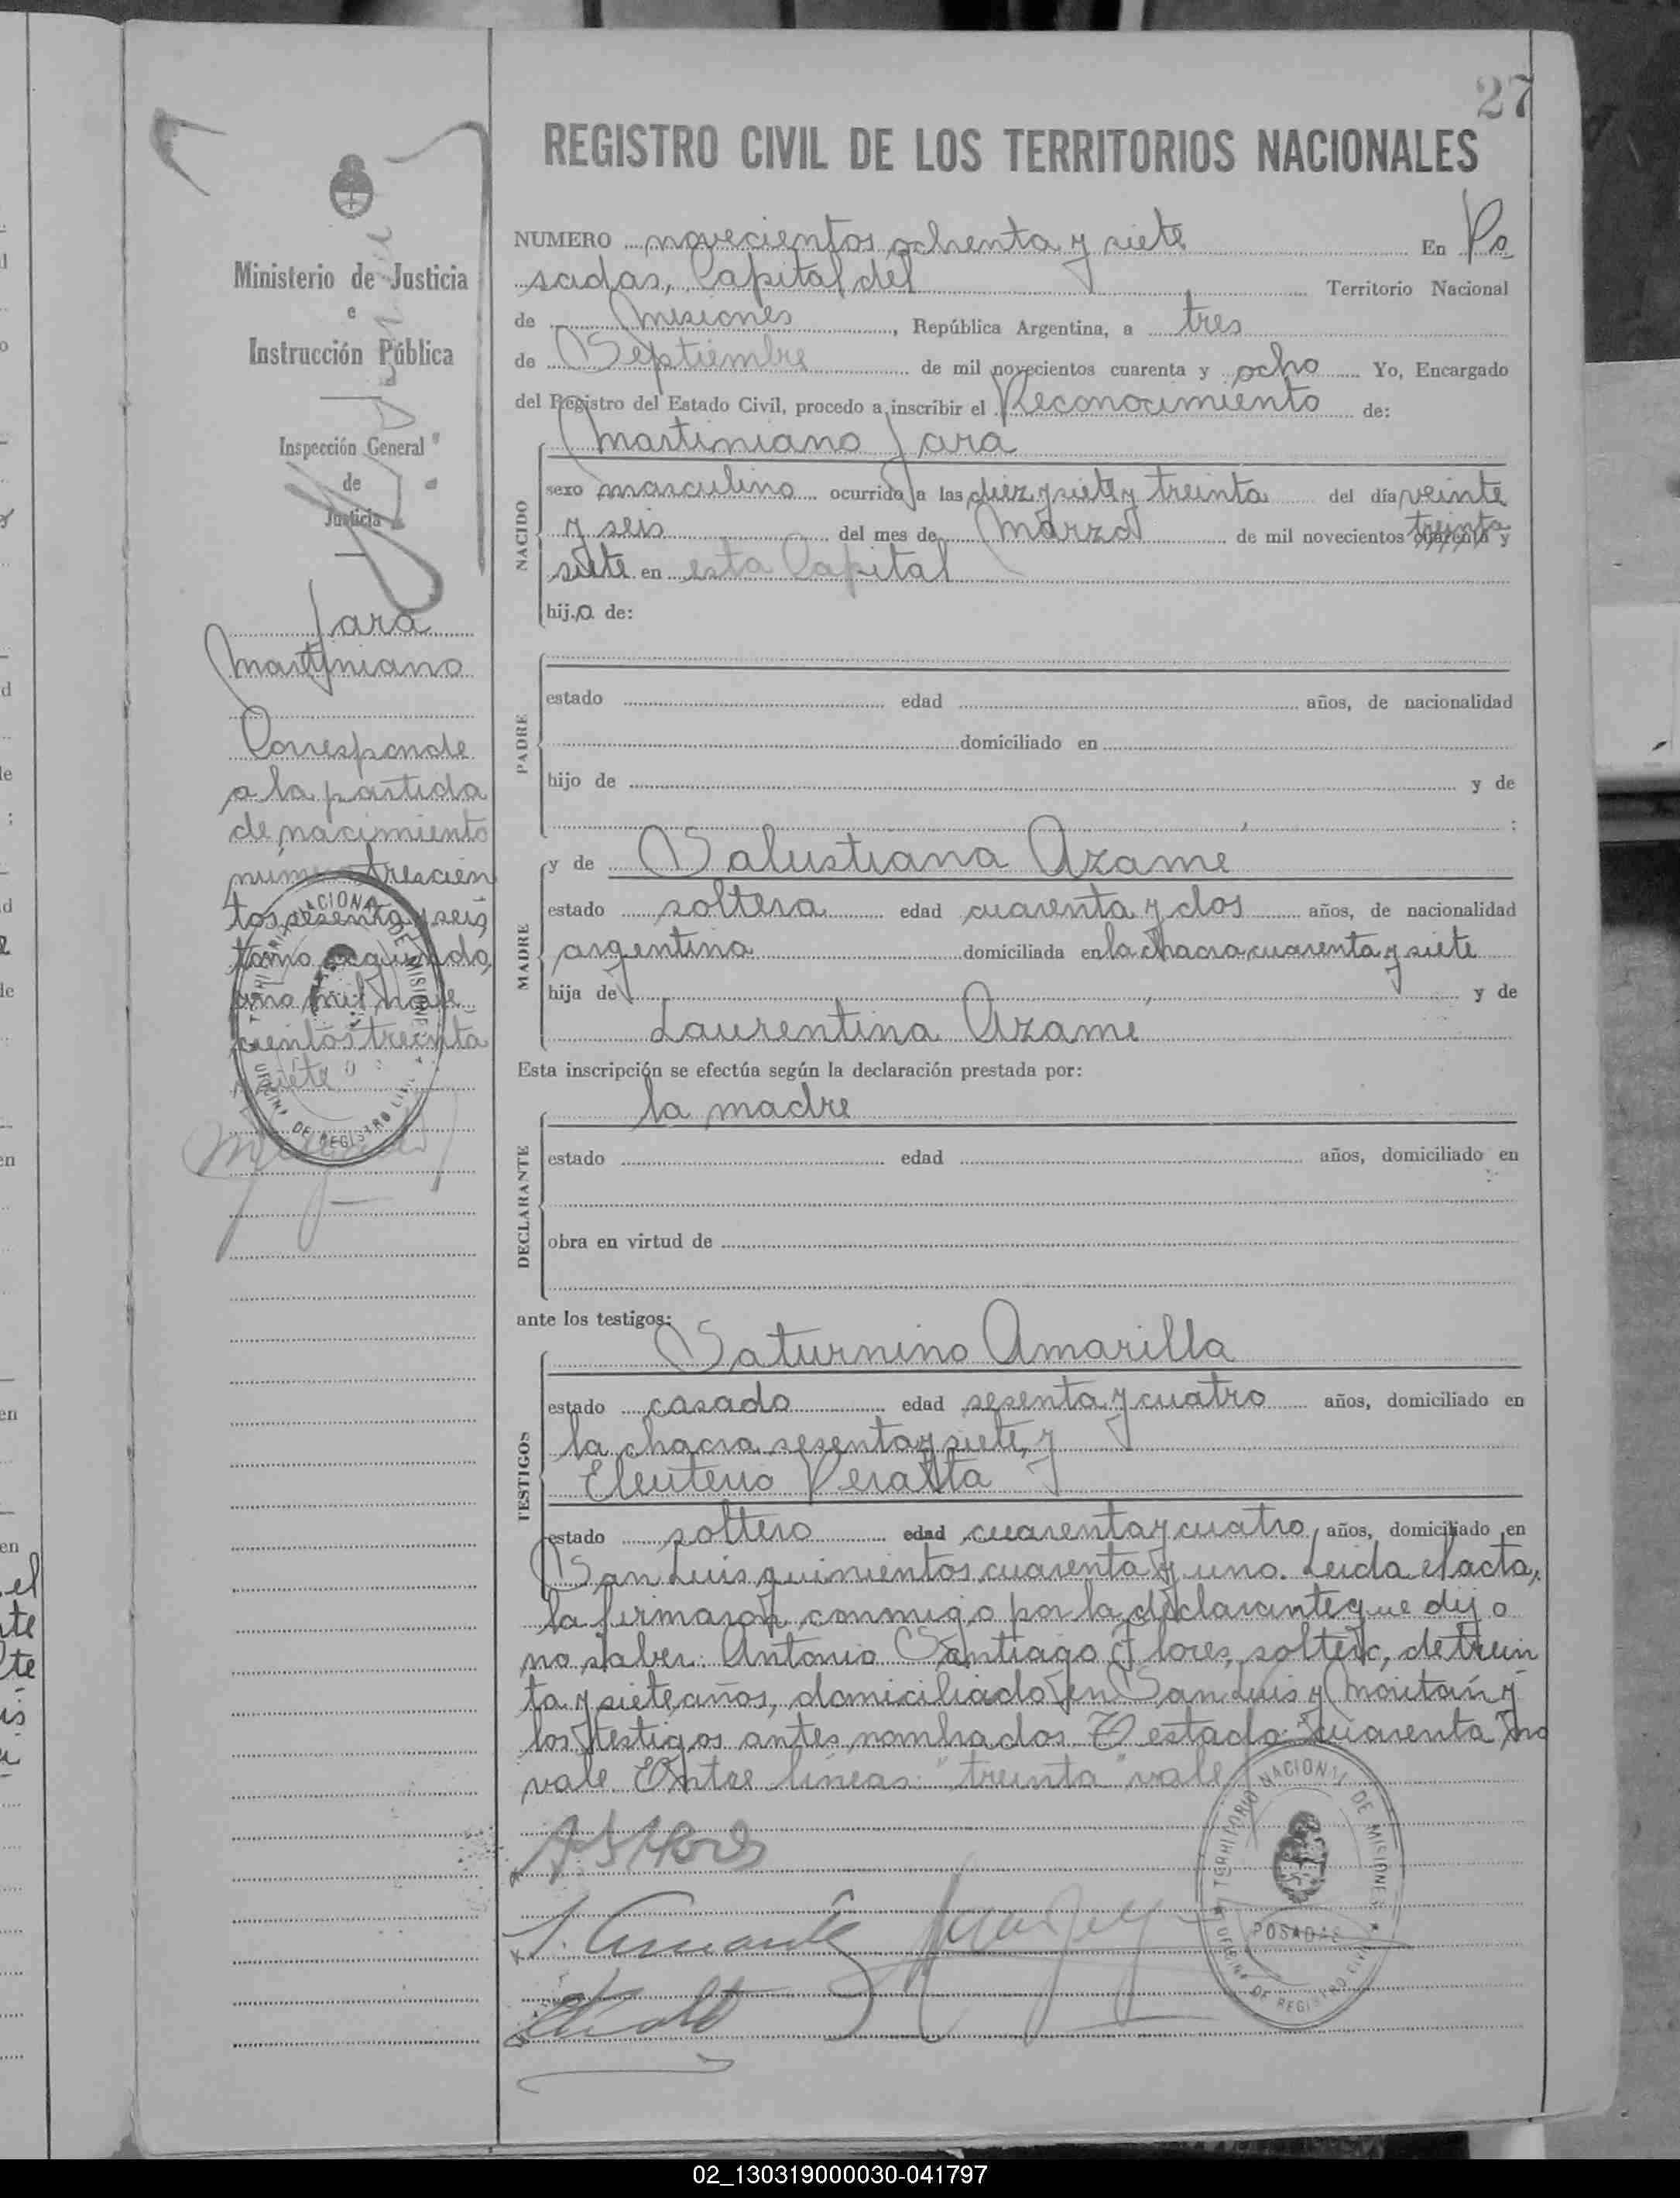 27
REGISTRO CIVIL DE LOS TERRITORIOS NACIONALES
Ministerio de Justicia
e
Instrucción Pública
Inspección General
de
Justicia
Jara
Martiniano
Corresponde
a la partida
de nacimiento
trescien
tos sesenta y seis
tomo segundo,
año mil nove
cientos treinta
y siete
NUMERO novecientos ochenta y siete En Po
sadas, Capital del Territorio Nacional
de Misiones, República Argentina, a tres
de Septiembre de mil novecientos cuarenta y ocho Yo, Encargado
del Registro del Estado Civil, procedo a inscribir el Reconocimiento de:
Martiniano Jara
NACIDO
sexo masculino ocurrido a las diez y siete y treinta del día veinte
y seis del mes de Marzo de mil novecientos treinta cuarenta y
siete en esta Capital
hijo de:
PADRE
estado edad años, de nacionalidad
domiciliado en
hijo de y de
, ;
MADRE
y de Salustiana Azame
estado soltera edad cuarenta y dos años, de nacionalidad
argentina domiciliada en la chacra cuarenta y siete
hija de , y de
Laurentina Azame
Esta inscripción se efectúa según la declaración prestada por:
DECLARANTE
la madre
estado edad años, domiciliado en
obra en virtud de
ante los testigos:
TESTIGOS
Saturnino Amarilla
estado casado edad sesenta y cuatro años, domiciliado en
la chacra sesenta y siete, y
Eleuterio Peralta
estado soltero edad cuarenta y cuatro, años, domiciliado en
San Luis quinientos cuarenta y uno. Leida el acta,
la firmaron conmigo por la declarante que dijo
no saber: Antonio Santiago Flores, soltero, de trein
ta y siete años, domiciliado en San Luis y Moritán y
los testigos antes nombrados. estado: cuarenta no
vale. Entre líneas: "treinta" vale
TERRITORIO NACIONAL DE MISIONES
POSADAS
OFICINA DE REGISTRO CIVIL
02_130319000030-041797